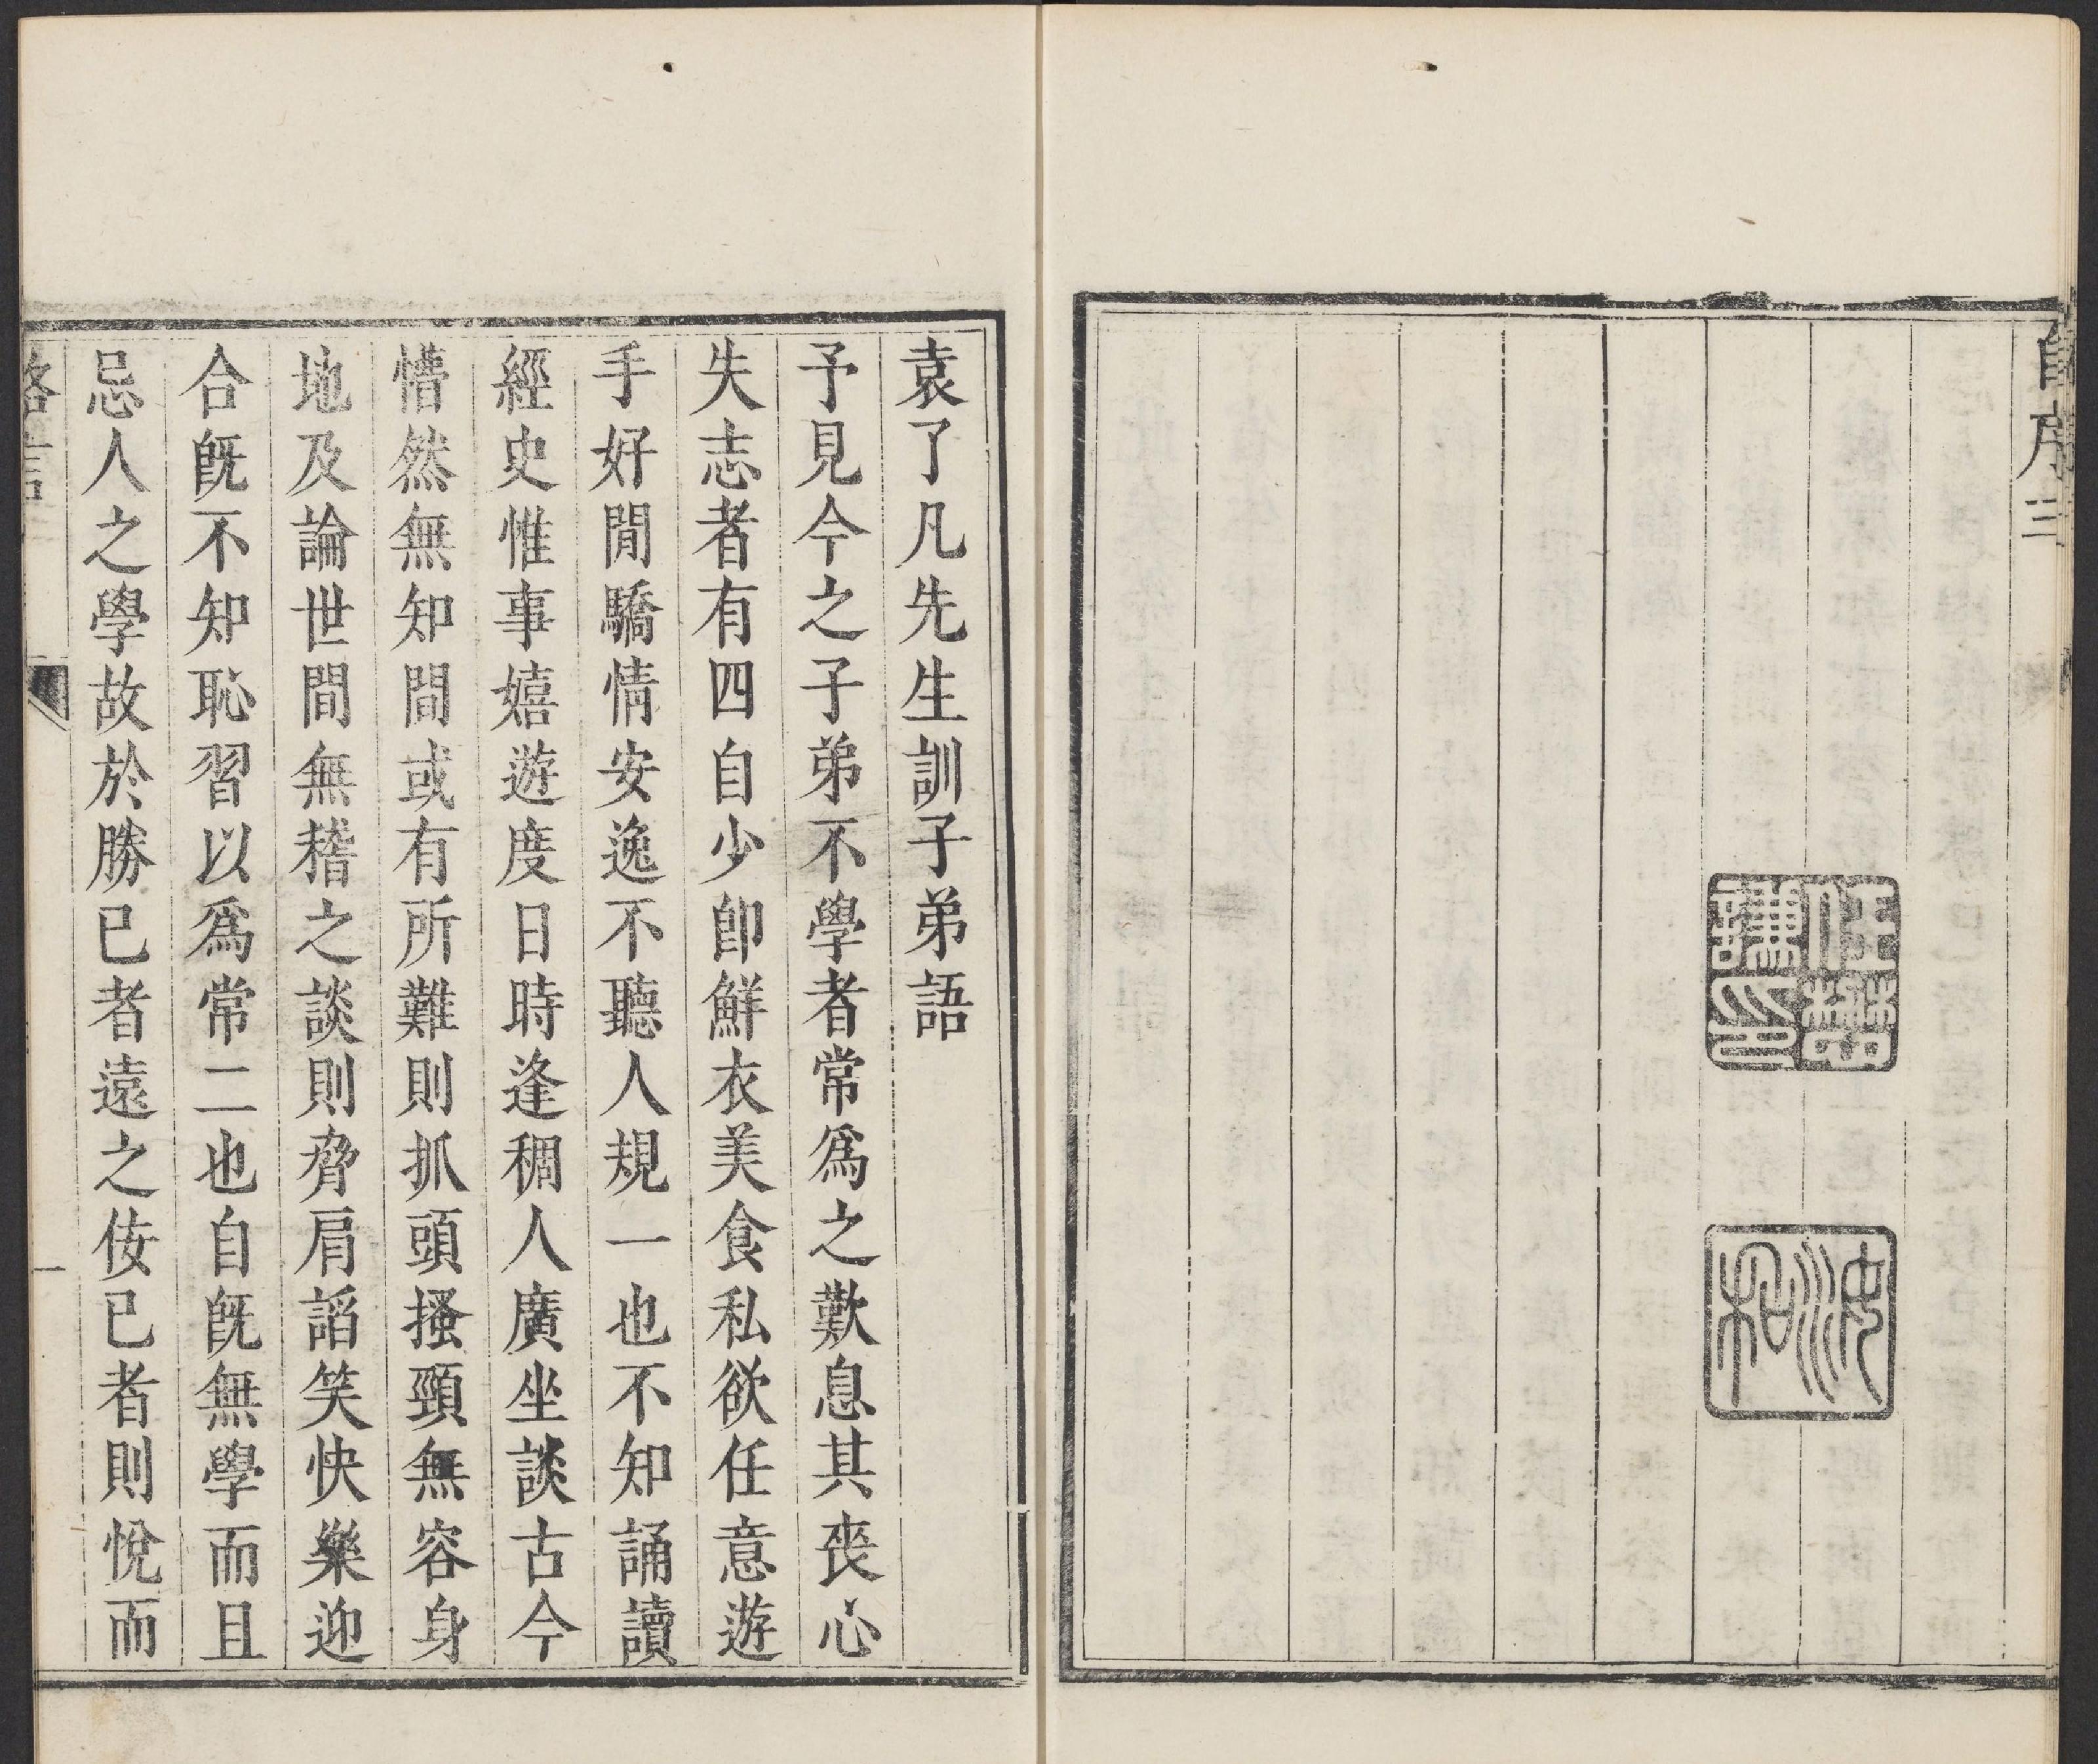 自序 三
袁了凡先生訓子弟語
予見今之子弟不學者常爲之歎息其喪心
失志者有四自少卽鮮衣美食私欲任意遊
手好閒驕情安逸不聽人規一也不知誦讀
經史惟事嬉遊度日時逢稠人廣坐談古今
懵然無知間或有所難則抓頭搔頸無容身
地及論世間無稽之談則脅肩謟笑快樂迎
合旣不知恥習以爲常二也自旣無學而且
忌人之學故於勝已者遠之佞已者則悅而
一